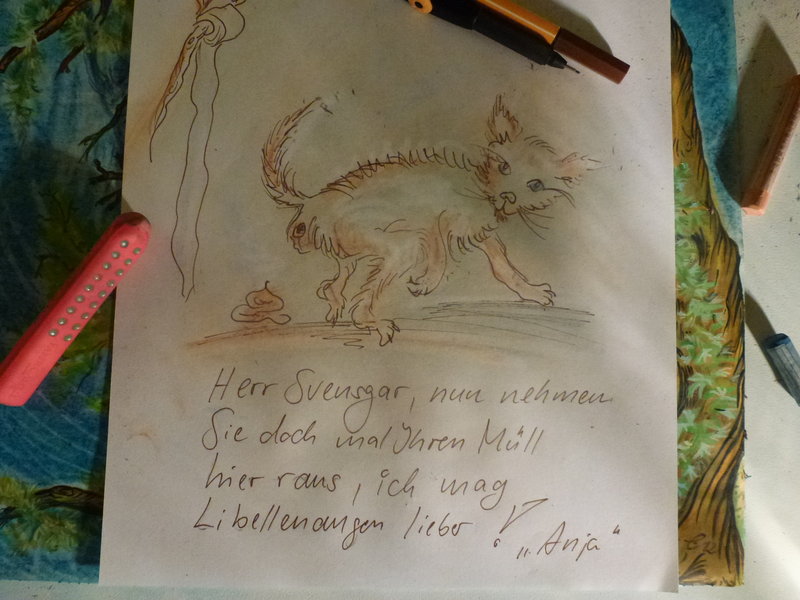 Herr Svensgar, nun nehmen
Sie doch mal Ihren Müll
hier raus, ich mag
Libellenaugen lieber !
„Anja“